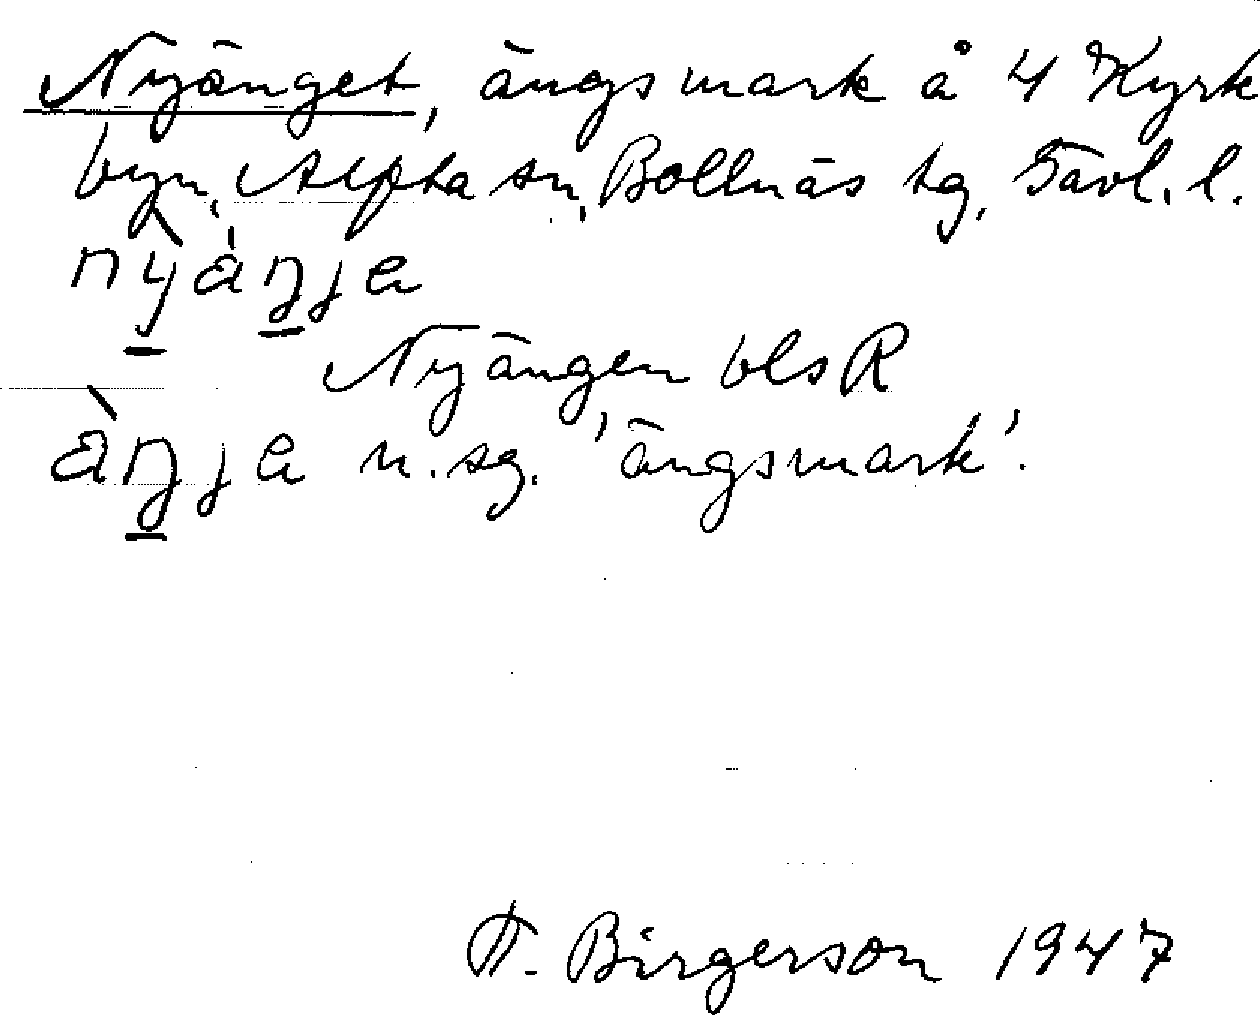 Nyänget, ängsmark å 4 Kyrk
byn, Alfta sn, Bollnäs tg, Gävl. l.
nỳa̍ŋ̱ja
Nyängen bls R
àŋ̱ja n. sg. 'ängsmark'.
T. Birgerson 1947